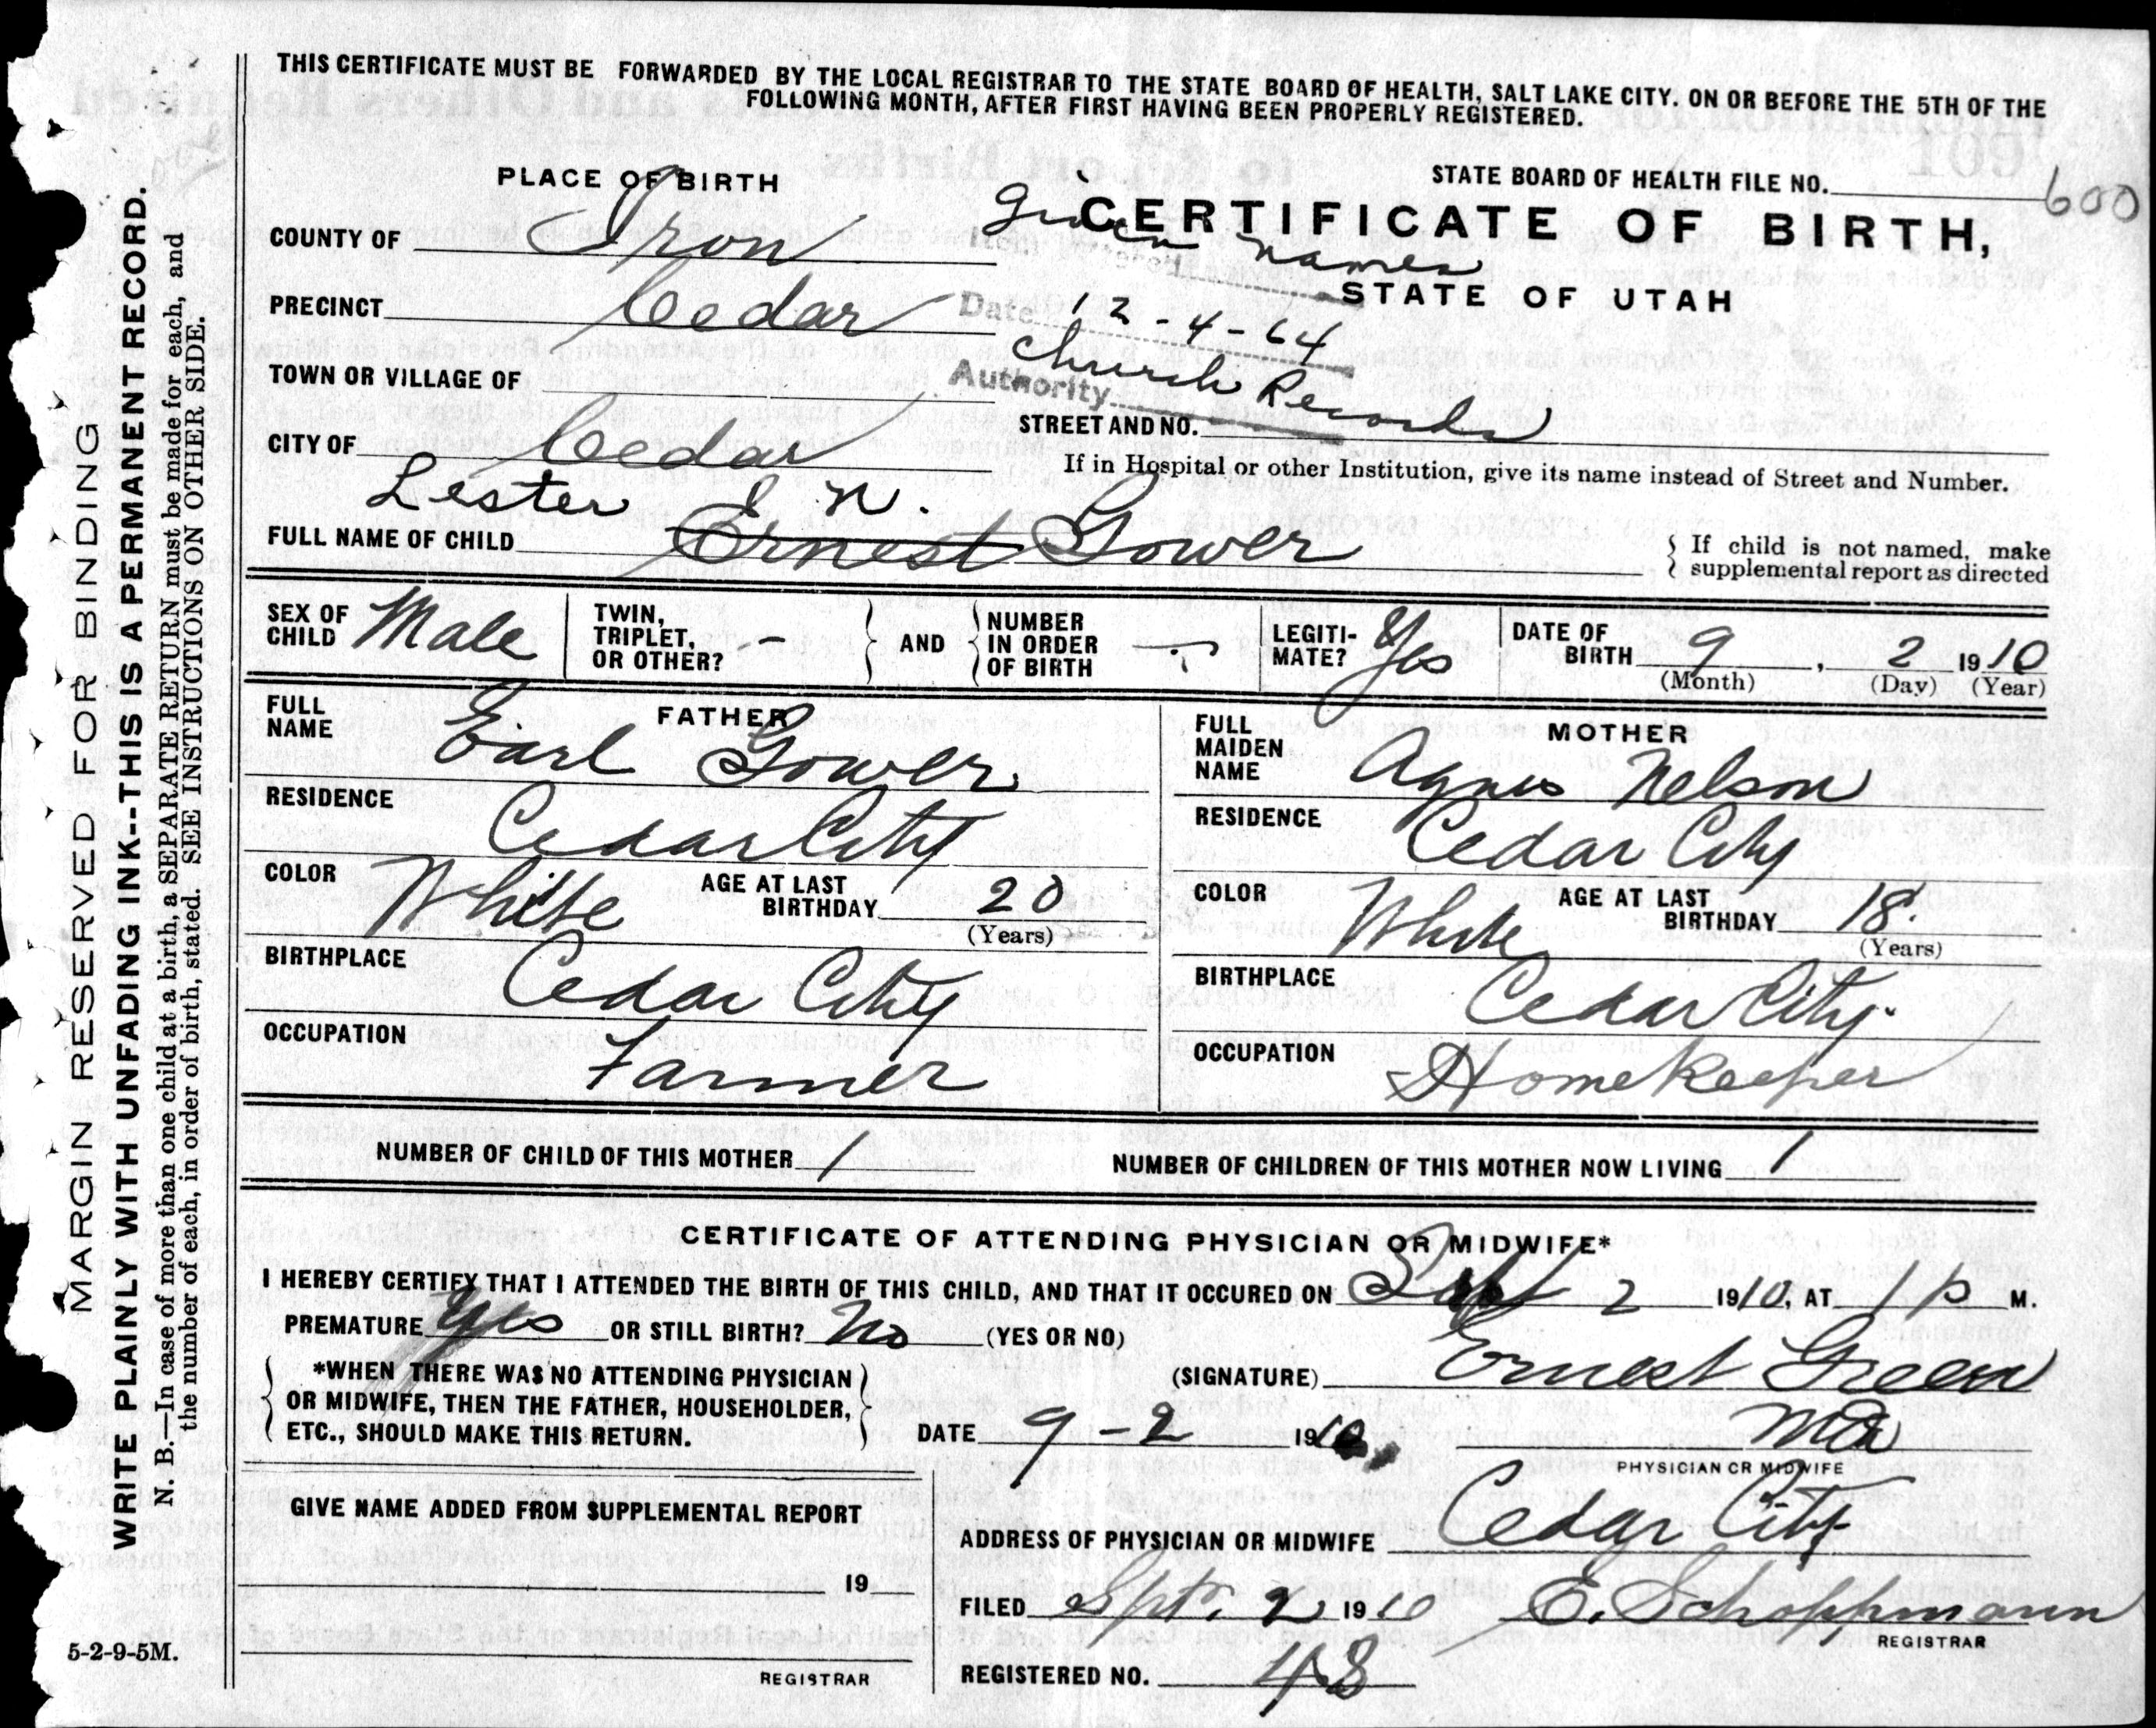 THIS CERTIFICATE MUST BE FORWARDED BY THE LOCAL REGISTRAR TO THE STATE BOARD OF HEALTH, SALT LAKE CITY. ON OR BEFORE THE 5TH OF THE
FOLLOWING MONTH, AFTER FIRST HAVING BEEN PROPERLY REGISTERED.
PLACE OF BIRTH
STATE BOARD OF HEALTH FILE NO. 600
CERTIFICATE OF BIRTH,
STATE OF UTAH
COUNTY OF Iron
Given Names
PRECINCT Cedar
Date 12-4-64
TOWN OR VILLAGE OF
Authority Church Records
STREET AND NO.
CITY OF Cedar
If in Hospital or other Institution, give its name instead of Street and Number.
Lester E. N.
FULL NAME OF CHILD Ernest Gower
If child is not named, make
supplemental report as directed
SEX OF CHILD Male
TWIN, TRIPLET, OR OTHER? -
AND
NUMBER IN ORDER OF BIRTH -
LEGITIMATE? Yes
DATE OF BIRTH 9, 2 1910
(Month) (Day) (Year)
FATHER
FULL NAME Earl Gower
RESIDENCE Cedar City
COLOR White
AGE AT LAST BIRTHDAY 20
(Years)
BIRTHPLACE Cedar City
OCCUPATION Farmer
MOTHER
FULL MAIDEN NAME Agnes Nelson
RESIDENCE Cedar City
COLOR White
AGE AT LAST BIRTHDAY 18
(Years)
BIRTHPLACE Cedar City
OCCUPATION Home Keeper
NUMBER OF CHILD OF THIS MOTHER 1
NUMBER OF CHILDREN OF THIS MOTHER NOW LIVING 1
CERTIFICATE OF ATTENDING PHYSICIAN OR MIDWIFE*
I HEREBY CERTIFY THAT I ATTENDED THE BIRTH OF THIS CHILD, AND THAT IT OCCURED ON Sept 2 1910, AT 1 P M.
PREMATURE Yes OR STILL BIRTH? No (YES OR NO)
*WHEN THERE WAS NO ATTENDING PHYSICIAN
OR MIDWIFE, THEN THE FATHER, HOUSEHOLDER,
ETC., SHOULD MAKE THIS RETURN.
(SIGNATURE) Ernest Green
DATE 9-2 1910
MD
PHYSICIAN OR MIDWIFE
GIVE NAME ADDED FROM SUPPLEMENTAL REPORT
19
REGISTRAR
ADDRESS OF PHYSICIAN OR MIDWIFE Cedar City
FILED Sept. 2 1910 E. Schoppmann
REGISTRAR
REGISTERED NO. 48
5-2-9-5M.
MARGIN RESERVED FOR BINDING
WRITE PLAINLY WITH UNFADING INK--THIS IS A PERMANENT RECORD.
N. B.—In case of more than one child at a birth, a SEPARATE RETURN must be made for each, and
the number of each, in order of birth, stated. SEE INSTRUCTIONS ON OTHER SIDE.